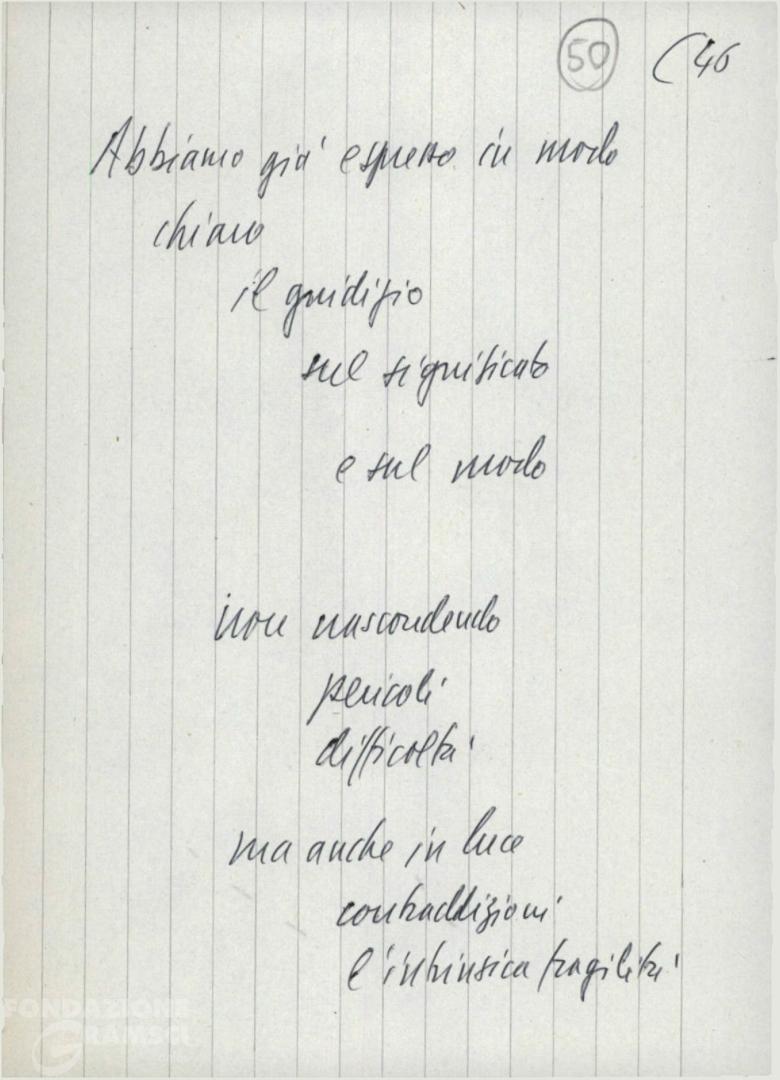 50 (46
Abbiamo già espresso in modo
chiaro
il giudizio
sul significato
e sul modo
non nascondendo
pericoli
difficoltà
ma anche in luce
contraddizioni
l'intrinsica fragilità
FONDAZIONE
GRAMSCI